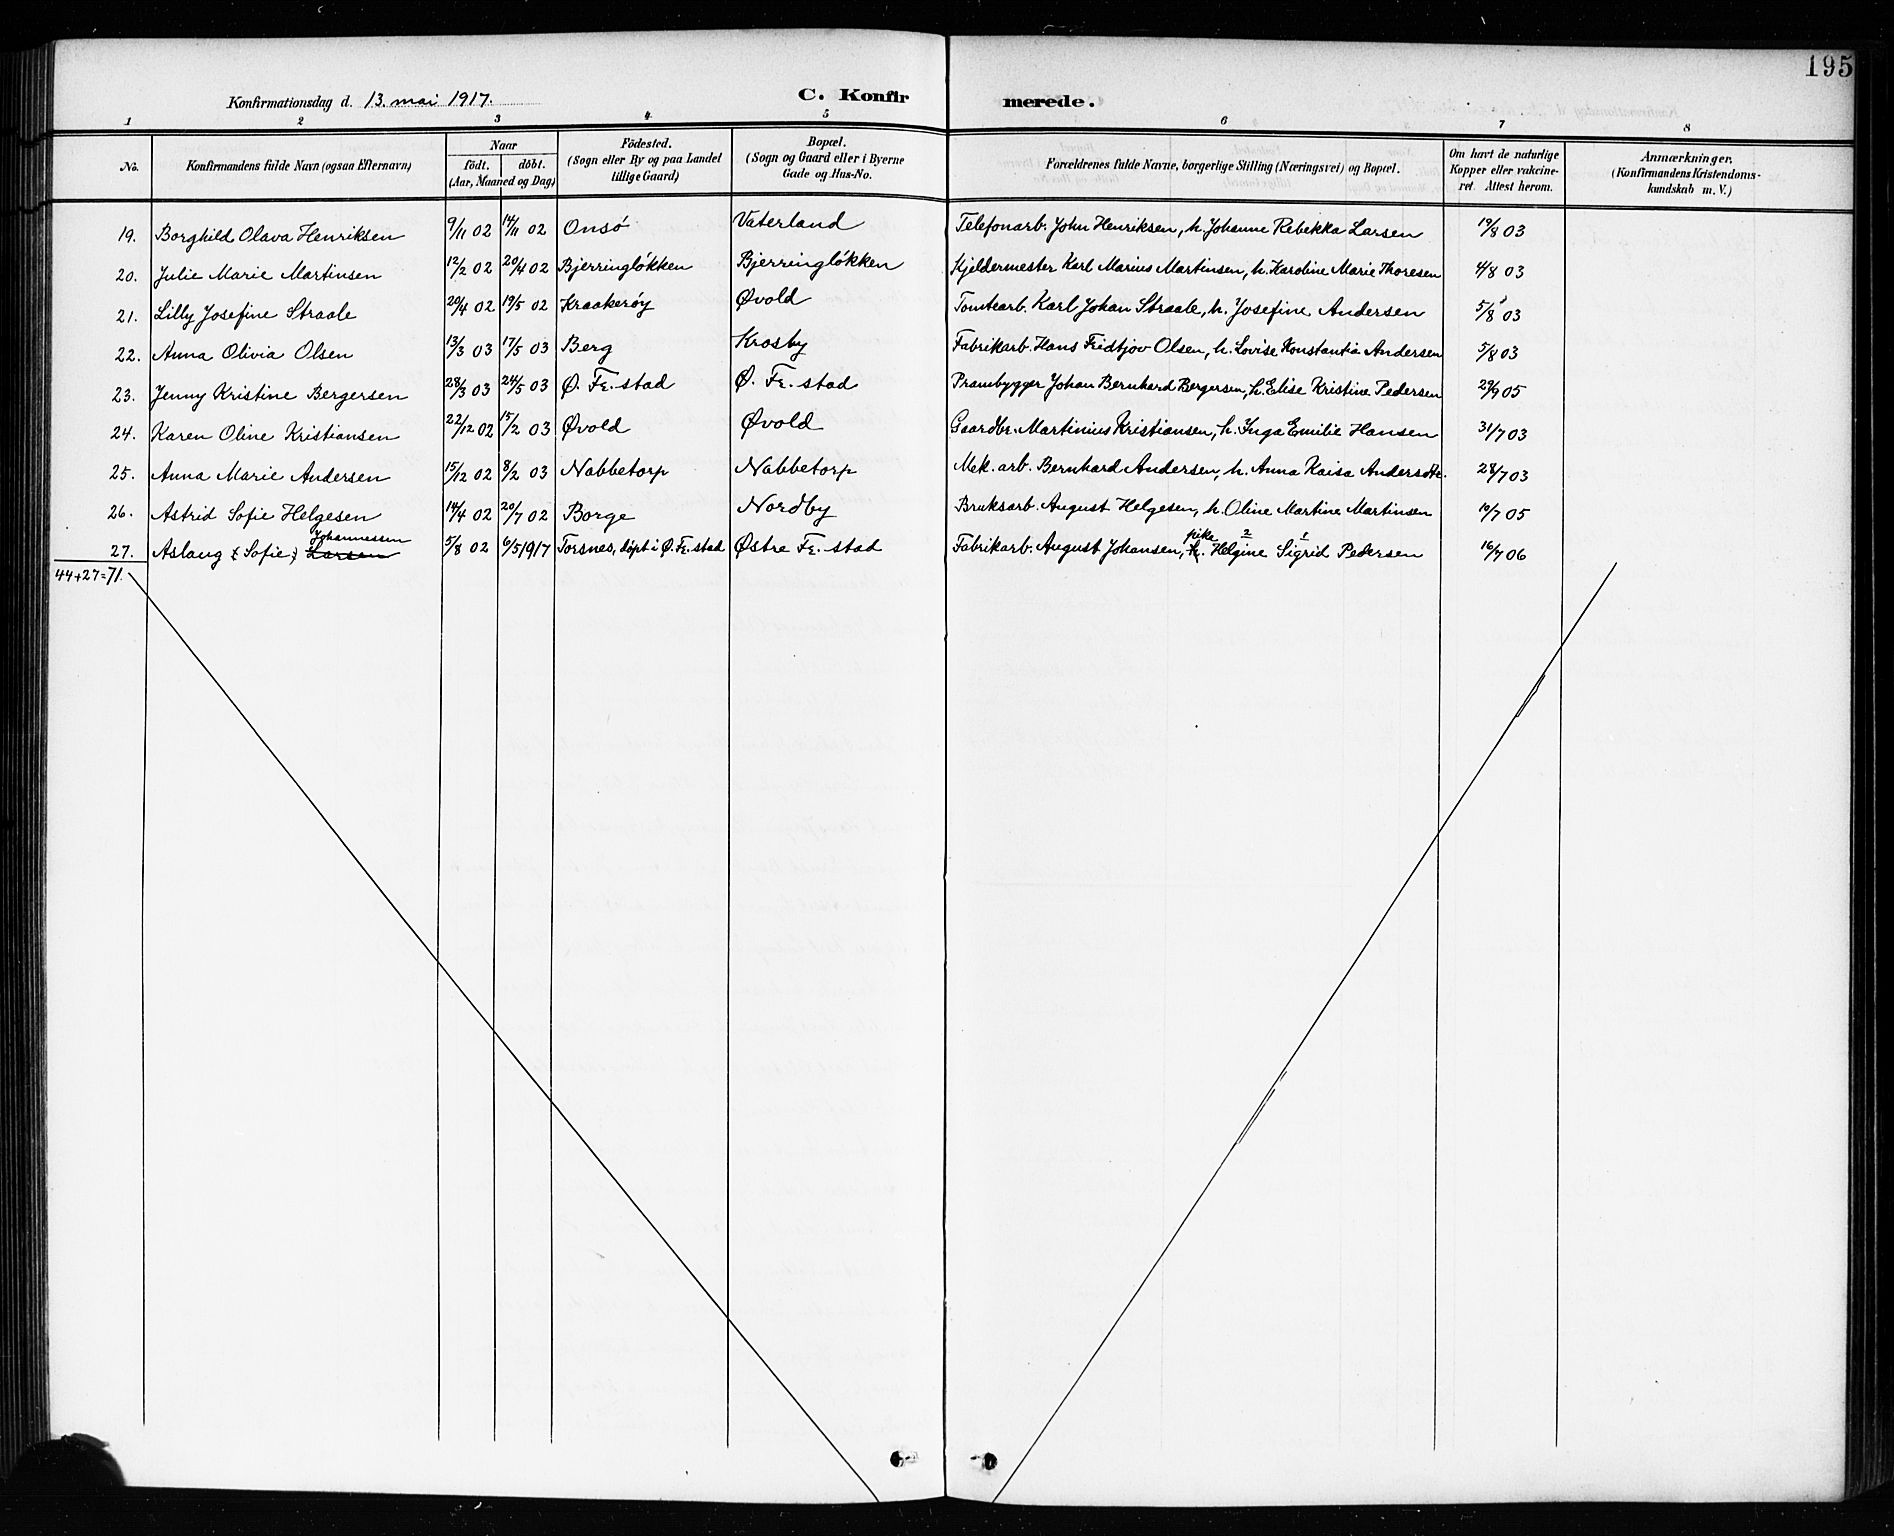 195
Konfirmationsdag d. 13. mai 1917. C. Konfirmerede.
1 2 3 4 5 6 7 8
No. Konfirmandens fulde Navn (ogsaa Efternavn) Naar født. døbt. (Aar, Maaned og Dag) Fødested. (Sogn eller By og paa Landet tillige Gaard) Bopæl. (Sogn og Gaard eller i Byerne Gade og Hus-No. Forældrenes fulde Navne, borgerlige Stilling (Næringsvei) og Bopæl. Om havt de naturlige Kopper eller vakcineret. Attest herom. Anmærkninger. (Konfirmandens Kristendomskundskab m. V.)
19. Borghild Olava Henriksen 9/11 02 14/11 02 Onsö Vaterland Telefonarb. John Henriksen, h. Johanne Rebekka Larsen 19/8 03
20. Julie Marie Martinsen 12/2 02 20/4 02 Bjerringløkken Bjerringløkken Kjeldermester Karl Marius Martinsen, h. Karoline Marie Thoresen 4/8 03
21. Lilly Josefine Straale 20/4 02 19/5 02 Kraakerøy Øvold Tomtearb. Karl Johan Straale, h. Josefine Andersen 5/8 03
22. Anna Olivia Olsen 13/3 03 17/5 03 Berg Krosby Fabrikarb. Hans Fridtjov Olsen, h. Lovise Konstantia Andersen 5/8 03
23. Jenny Kristine Bergersen 28/3 03 24/5 03 Ø. Fr. stad Ø. Fr. stad Prambygger Johan Bernhard Bergersen, h. Elise Kristine Pedersen 29/9 05
24. Karen Oline Kristiansen 22/12 02 15/2 03 Øvold Øvold Gaardbr. Martinius Kristiansen, h. Inga Emilie Hansen 31/7 03
25. Anna Marie Andersen 15/12 02 8/2 03 Nabbetorp Nabbetorp Mek. arb. Bernhard Andersen, h. Anna Kaisa Andersdtr. 28/7 03
26. Astrid Sofie Helgesen 14/4 02 20/7 02 Borge Nordby Bruksarb. August Helgesen, h. Oline Martine Martinsen 10/7 05
Johannessen pike 2 1
27. Aslaug (Sofie) Larsen 5/8 02 6/5 1917 Torsnes, döpt i Ø. Fr. stad Østre Fr. stad Fabrikarb. August Johansen, h. Helgine Sigrid Pedersen 16/7 06
44+27=71.